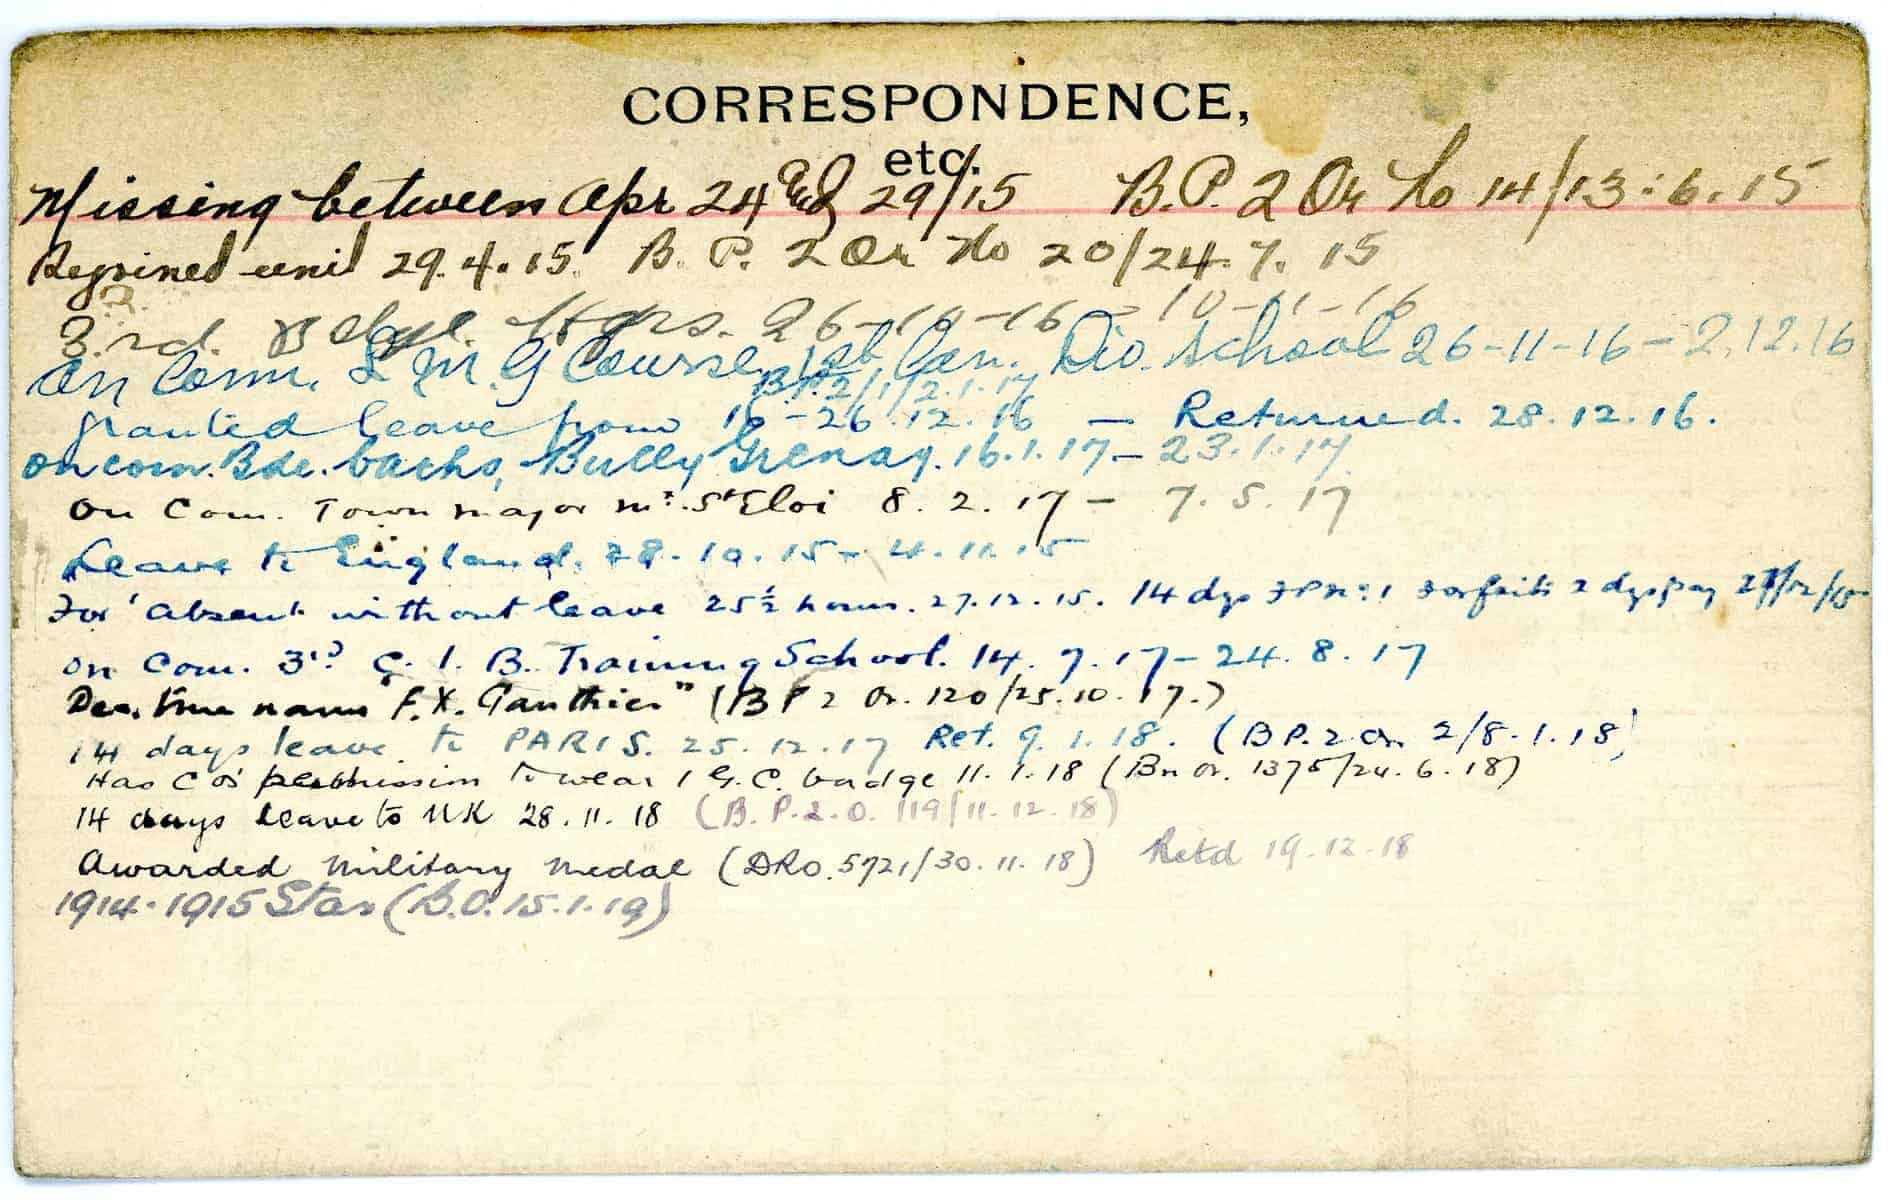 CORRESPONDENCE,
etc.
Missing between Apr 24 & 29/15 B.P. 2 Or No 14/13.6.15
Rejoined unit 29.4.15 B.P. 2 Or No 20/24.7.15
3rd. Hqrs. 26-10-16 - 10-11-16
On Com. L M G Course, 1st Can. Div. School 26-11-16 - 2.12.16
B.P.2/1/2.1.17
granted leave from 16-26.12.16 — Returned. 28.12.16.
on com. Bde. baths, Bully Grenay. 16.1.17 - 23.1.17
On Com. Town major Mt. St Eloi 8.2.17 - 7.5.17
Leave to England. 28.10.15 - 4.11.15
For 'Absent without leave 25½ hours. 27.12.15. 14 dys F P No 1 Forfeits 2 dys pay 27/12/15
On Com. 3rd C. I. B. Training School. 14.7.17 - 24.8.17
Dec. true name "F.X. Gauthier" (B P 2 Or. 120/25.10.17.)
14 days leave to PARIS. 25.12.17 Ret. 9.1.18. (B P. 2 Or 2/8.1.18)
Has C O's permission to wear 1 G.C. badge 11.1.18 (Bn Or. 1375/24.6.18)
14 days leave to UK 28.11.18 (B.P.2.O. 119/11.12.18)
Awarded Military Medal (DRO. 5721/30.11.18) Retd 19.12.18
1914-1915 Star (B.O. 15.1.19)